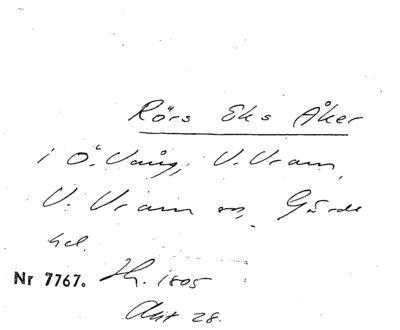 Rörs Eks Åker
i Ö. Vång, V. Vram,
V. Vram sn, Gärds
hd.
Nr 7767. Hh. 1805
Akt 28.